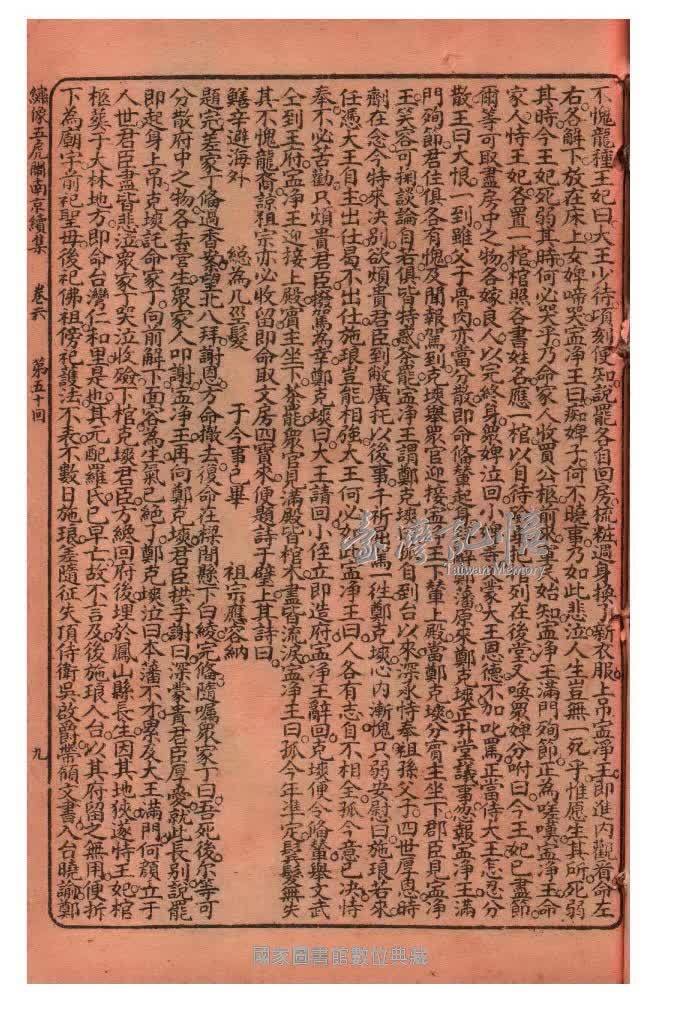 不愧龍種王妃曰大王少待頃刻便知說罷各自回房梳粧過身換了新衣服上吊寍淨王即進內觀着命左
右各解下放在床上女婢啼哭寍淨王曰痴婢子何不曉事乃如此悲泣人生豈無一死乎惟愿生其所死弱
其時今王妃死弱其時何必哭乎乃命家人收買公柩前來軍民始知寍淨王滿門殉節正為嗟嘆寍淨王命
家人恃王妃各置一棺棺照各書姓名應一棺以自待
列在後堂又喚眾婢分咐曰今王妃已盡節
爾等可取盡房中之物各嫁良人以完終身眾婢泣回小婢等
蒙大王恩德不加叱罵正當侍大王忘忍分
散王曰大恨一到雖父子骨肉亦當乃散即命俻輦起身
鄭藩原來鄭克塽正升堂議事忽報寍淨王滿
門殉節君住俱各有愧及聞報駕到克塽舉眾官迎接寍淨王下輦上殿當鄭克塽分賓主坐下郡臣見寍淨
王笑容可掬談論自若俱皆特惑茶罷寍淨王謂鄭克塽
自到台以來深永恃奉祖孫父子四世厚恩時
劑在念今特來決別欲煩貴君臣到敝廣托以後事千祈
馬一徃鄭克塽心內漸愧只弱安慰曰施琅若來
任憑大王自主出仕曷不出仕施琅豈能相強大王何必
寍淨王曰人各有志自不相全孤今意已决恃
奉不必苦勸只煩貴君臣撥駕為幸鄭克塽曰大王請回小侄立即造府寍淨王辭回克塽便令俻輦舉文武
仝到王府寍淨王迎接上殿賓主坐下茶罷眾官見滿殿皆棺木盡皆流淚寍淨王曰孤今年凖定長髮無失
其不愧龍裔諒祖宗亦必收留即命取文房四寶來便題詩于壁上其詩曰
鱔辛避海外 縂為几莖髮 于今事已畢 祖宗應容納
題完差家丁俻過香案望北八拜謝恩方命撤去復命在樑間懸下白綾完俻隨嘱眾家丁曰吾死後尔等可
分散府中之物各去營生眾家人叩謝寍淨王再向鄭克塽君臣拱手謝曰深蒙貴君臣厚愛就此長別說罷
即起身上吊克塽託命家丁向前解下面容為生氣已絕了鄭克塽泣曰本藩不才累及大王滿門何顏立于
人世君臣盡皆悲泣眾家丁哭泣收殮下棺克塽君臣方縂回府後埋於鳳山縣長生因其地狹遂恃王妃棺
柩葬于大林地方即命台灣仁和里是也其元配羅氏已早亡故不言及後施琅入台以其府留之無用便折
下為廟宇前祀聖母後祀佛祖傍祀護法不表不數日施琅差隨征失頂侍衛吳啟爵帶領文書入台曉諭鄭
繡像五虎鬧南京續集 卷六 第五十回 九
臺灣記憶
Taiwan Memory
國家圖書館數位典藏